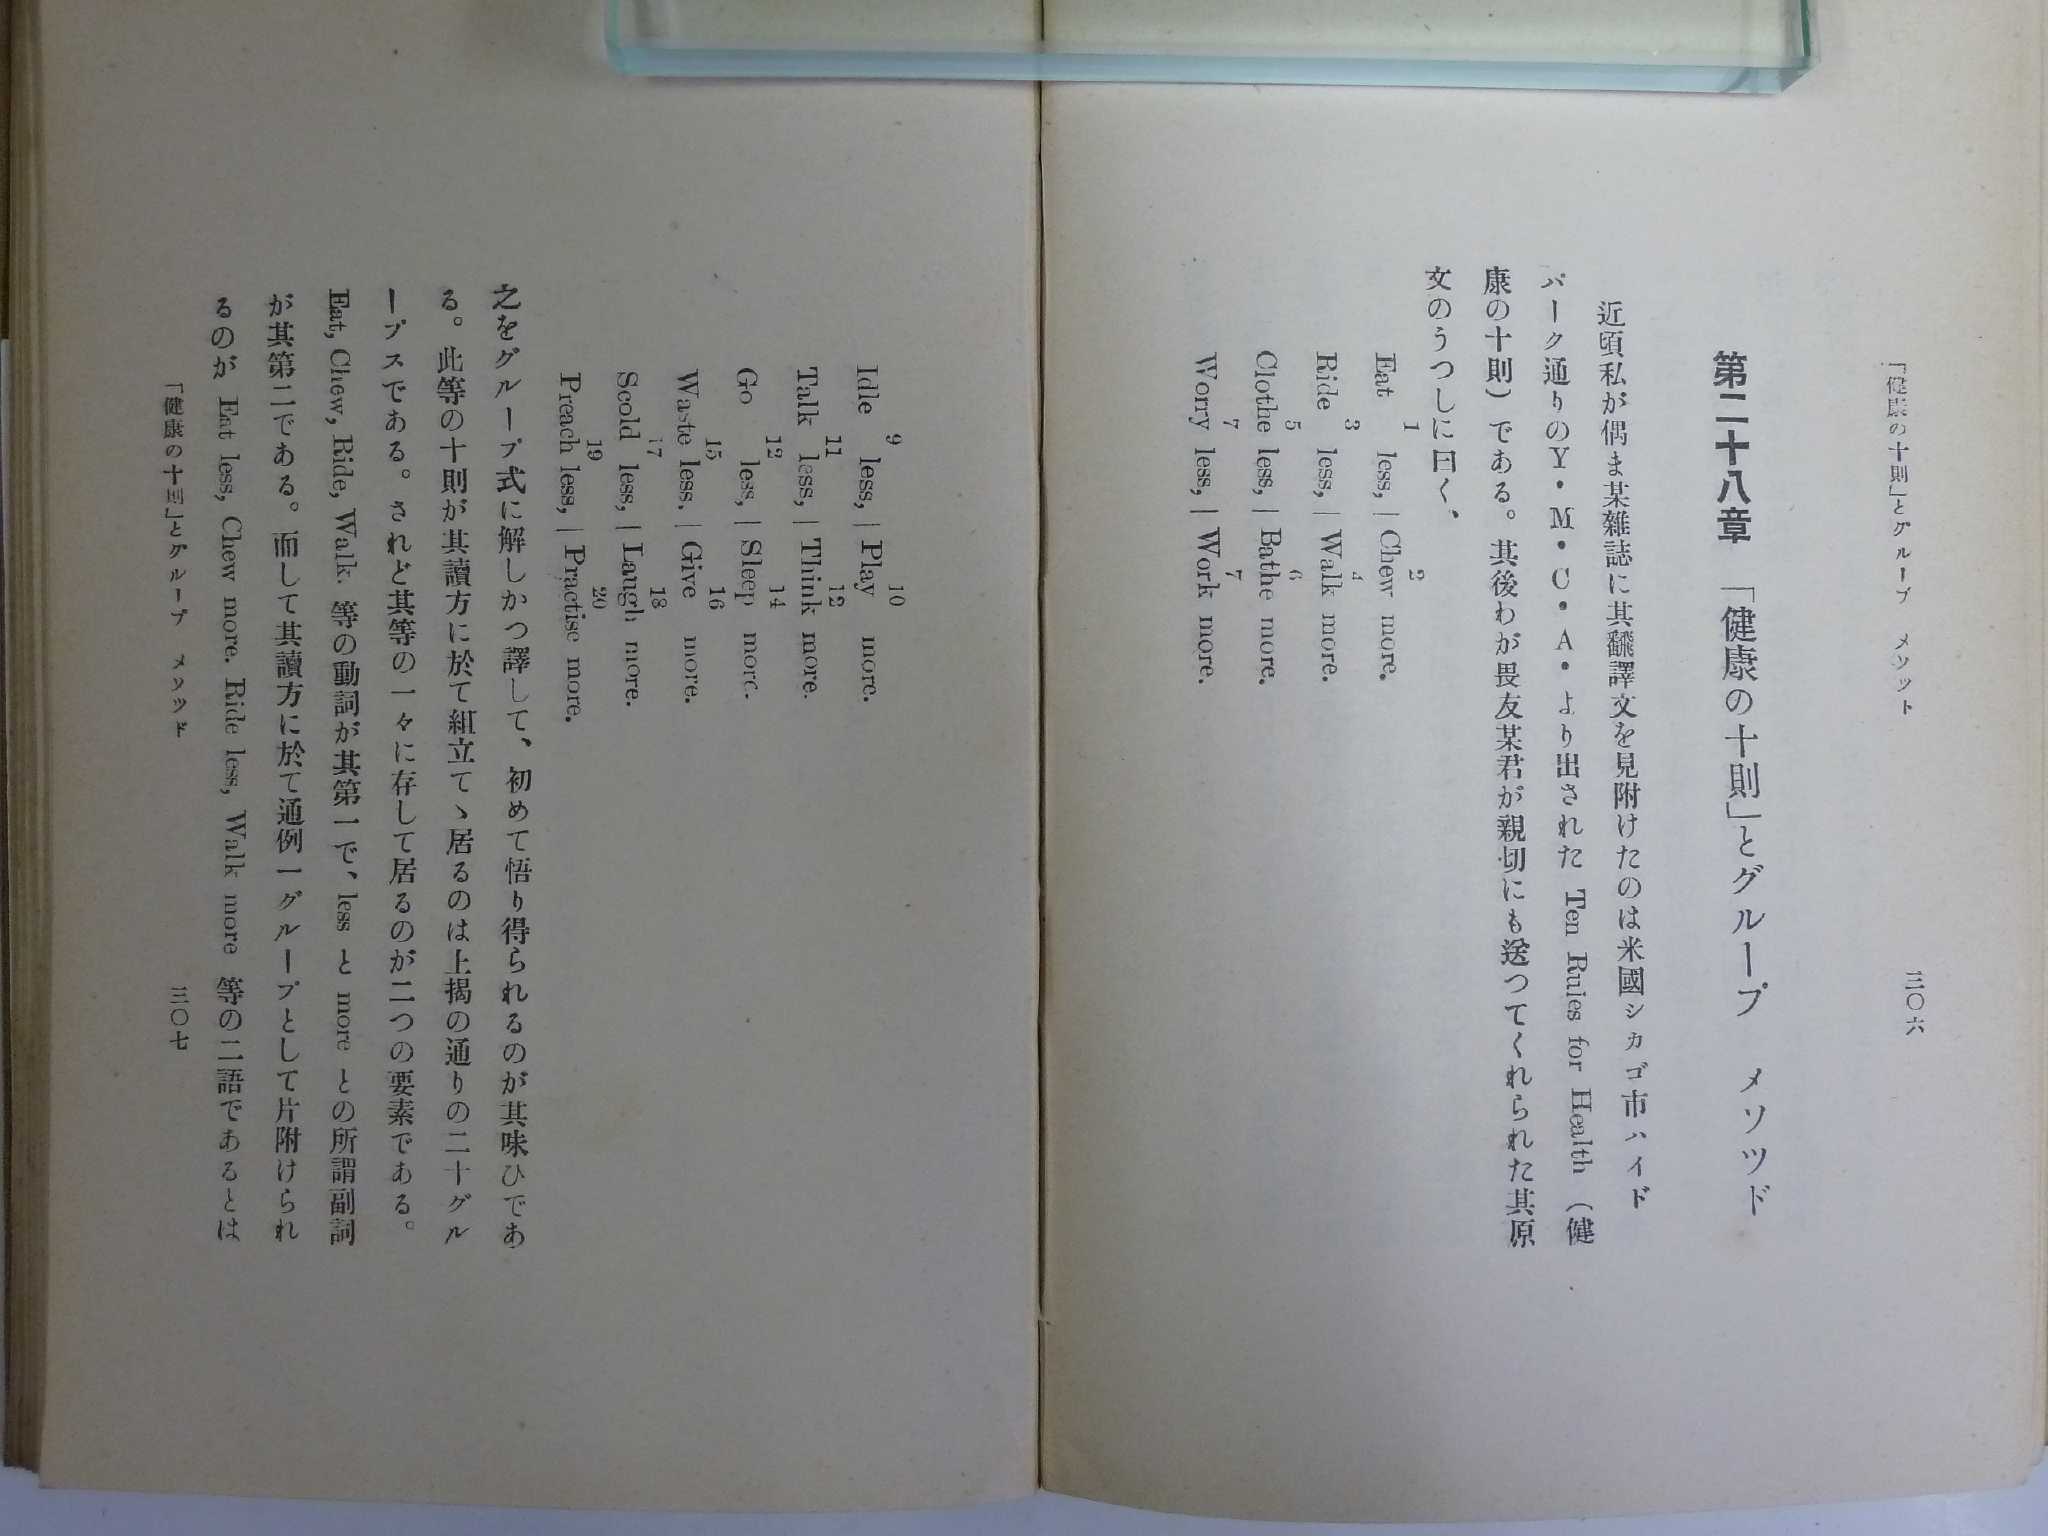 「健康の十則」とグループ　メソット
三〇六
第二十八章　「健康の十則」とグループ　メソツド
近頃私が偶ま某雜誌に其飜譯文を見附けたのは米國シカゴ市ハイド
パーク通りのY・M・C・A・より出された Ten Rules for Health (健
康の十則) である。其後わが畏友某君が親切にも送つてくれられた其原
文のうつしに曰く、
1 2
Eat less, | Chew more.
3 4
Ride less, | Walk more.
5 6
Clothe less, | Bathe more.
7 7
Worry less, | Work more.
9 10
Idle less, | Play more.
11 12
Talk less, | Think more.
12 14
Go less, | Sleep more.
15 16
Waste less. | Give more.
17 18
Scold less, | Laugh more.
19 20
Preach less, | Practise more.
之をグループ式に解しかつ譯して、初めて悟り得られるのが其味ひであ
る。此等の十則が其讀方に於て組立てゝ居るのは上揭の通りの二十グル
ープスである。されど其等の一々に存して居るのが二つの要素である。
Eat, Chew, Ride, Walk. 等の動詞が其第一で、less と more との所謂副詞
が其第二である。而して其讀方に於て通例一グループとして片附けられ
るのが Eat less, Chew more. Ride less, Walk more 等の二語であるとは
「健康の十則」とグループ　メソツド
三〇七